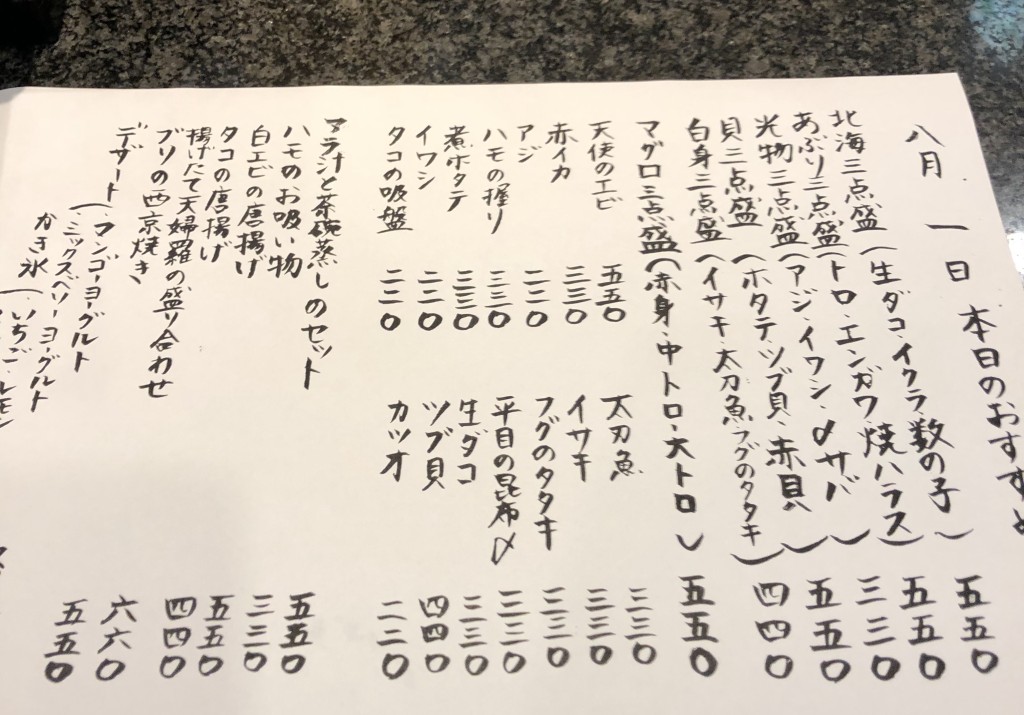 八月一日 本日のおすすめ
北海三点盛(生ダコ・イクラ・数の子) 五五〇
あぶり三点盛(トロ・エンガワ・焼ハラス) 五五〇
光物三点盛(アジ・イワシ・〆サバ) 三三〇
貝三点盛(ホタテ・ツブ貝・赤貝) 五五〇
白身三点盛(イサキ・太刀魚・フグのタタキ) 四四〇
マグロ三点盛(赤身・中トロ・大トロ) 五五〇
天使のエビ 五五〇 太刀魚 三三〇
赤イカ 三三〇 イサキ 三三〇
アジ 二二〇 フグのタタキ 三三〇
ハモの握り 三三〇 平目の昆布〆 三三〇
煮ホタテ 三三〇 生ダコ 三三〇
イワシ 二二〇 ツブ貝 四四〇
タコの吸盤 二二〇 カツオ 二二〇
アラ汁と茶碗蒸しのセット 五五〇
ハモのお吸い物 三三〇
白エビの唐揚げ 五五〇
タコの唐揚げ 四四〇
揚げたて天婦羅の盛り合わせ 六六〇
ブリの西京焼き 五五〇
デザート(・マンゴーヨーグルト
・ミックスベリーヨーグルト
かき氷(・いちご・レモン